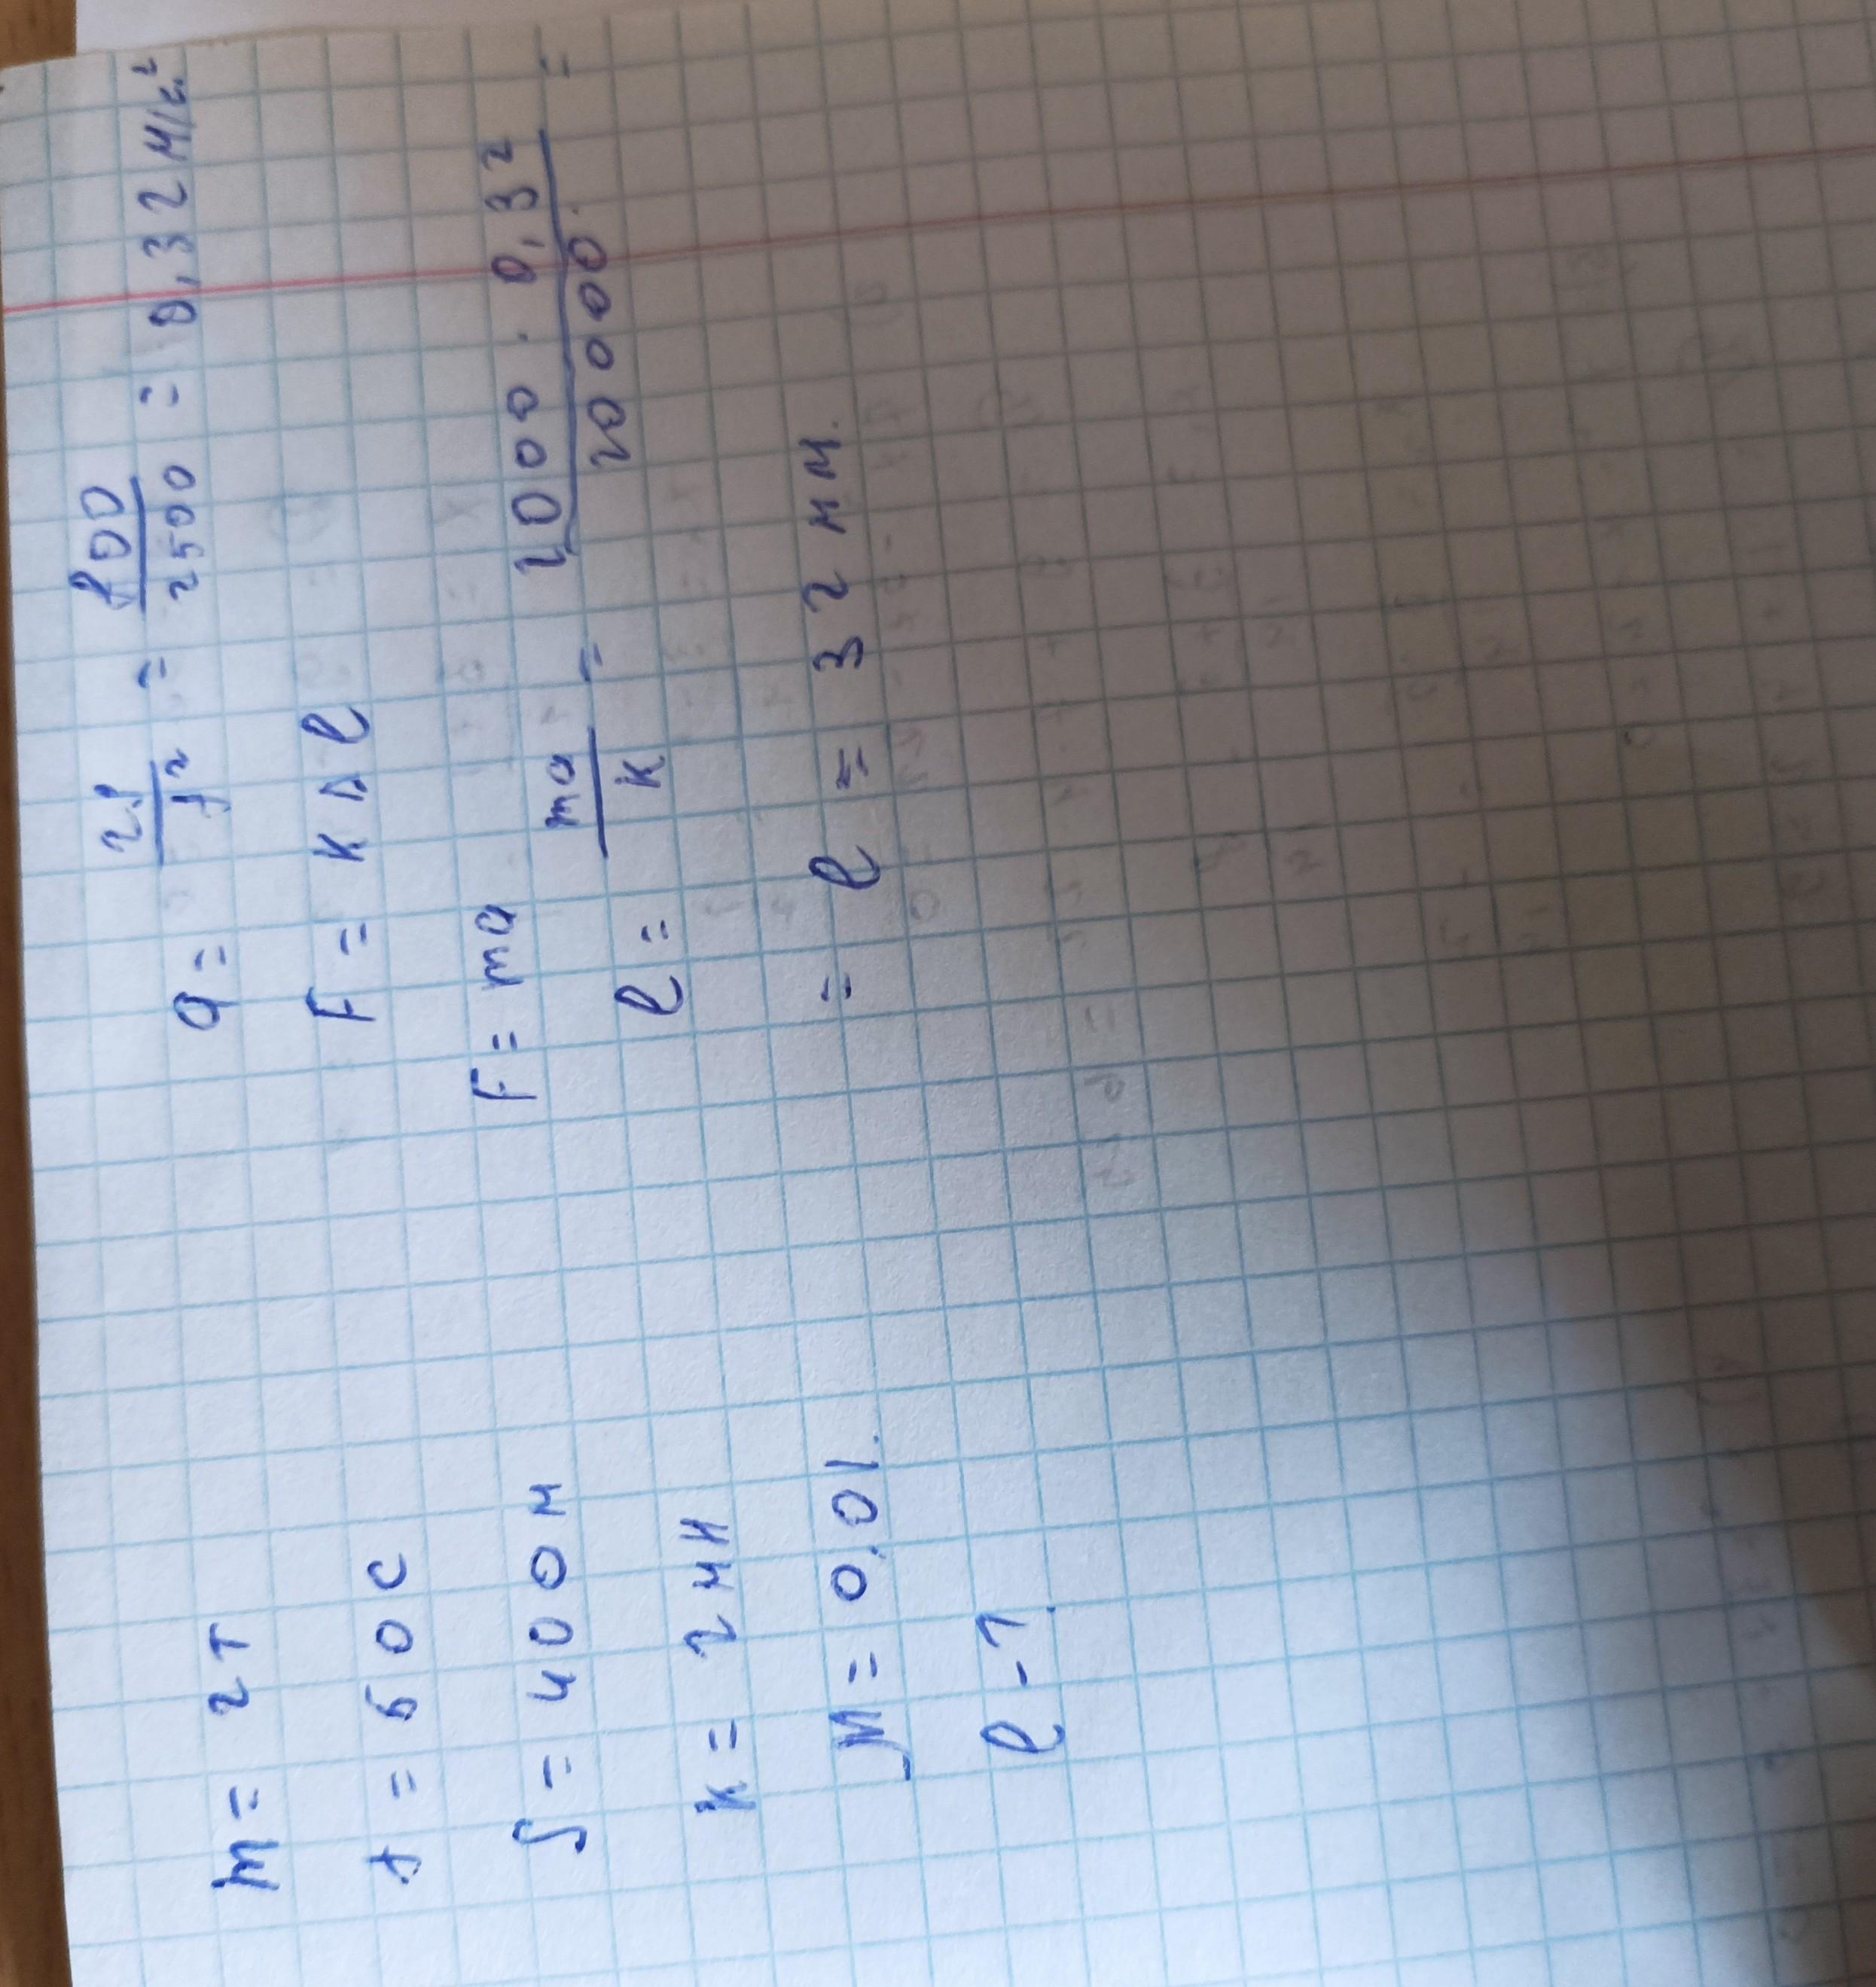 m = 2 т
t = 50 с
S = 400 м
k = 2 мН
μ = 0,01.
l - ?
a = 2S/t² = 800/2500 = 0,32 м/с²
F = k Δ l
F = ma
l = ma/k = 2000 · 0,32/20 0000. =
= l = 32 мм.